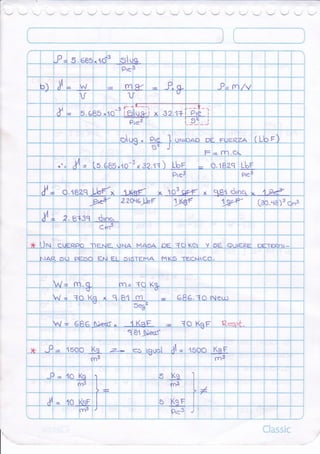 P = 5.685x10⁻³ slug / pie³
b) γ = W/V = mg/V = P.g P = m/V
γ = 5.685x10⁻³ slug/pie³ x 32.17 pie/s²
slug . pie/s² } UNIDAD DE FUERZA (LbF)
F = m.a
∴ γ = (5.685x10⁻³x32.17) LbF/pie³ = 0.1829 LbF/pie³
γ = 0.1829 LbF/pie³ x 1KgF/2.2046LbF x 10³grF/1KgF x 981 dina/1grF x 1pie³/(30.48)³cm³
γ = 2.8739 dina/cm³
* UN CUERPO TIENE UNA MASA DE 70KG Y SE QUIERE DETERMI-
NAR SU PESO EN EL SISTEMA MKS TECNICO.
W = m.g m = 70 Kg
W = 70 Kg x 9.81 m/seg² = 686.70 New
W = 686 New x 1KgF/9.81New = 70 KgF
* P = 1500 Kg/m³ es igual γ = 1500 KgF/m³
P = 10 Kg/m³ 5 Kg/m³
= ≠
γ = 10 KgF/m³ 5 KgF/pie³
Classic